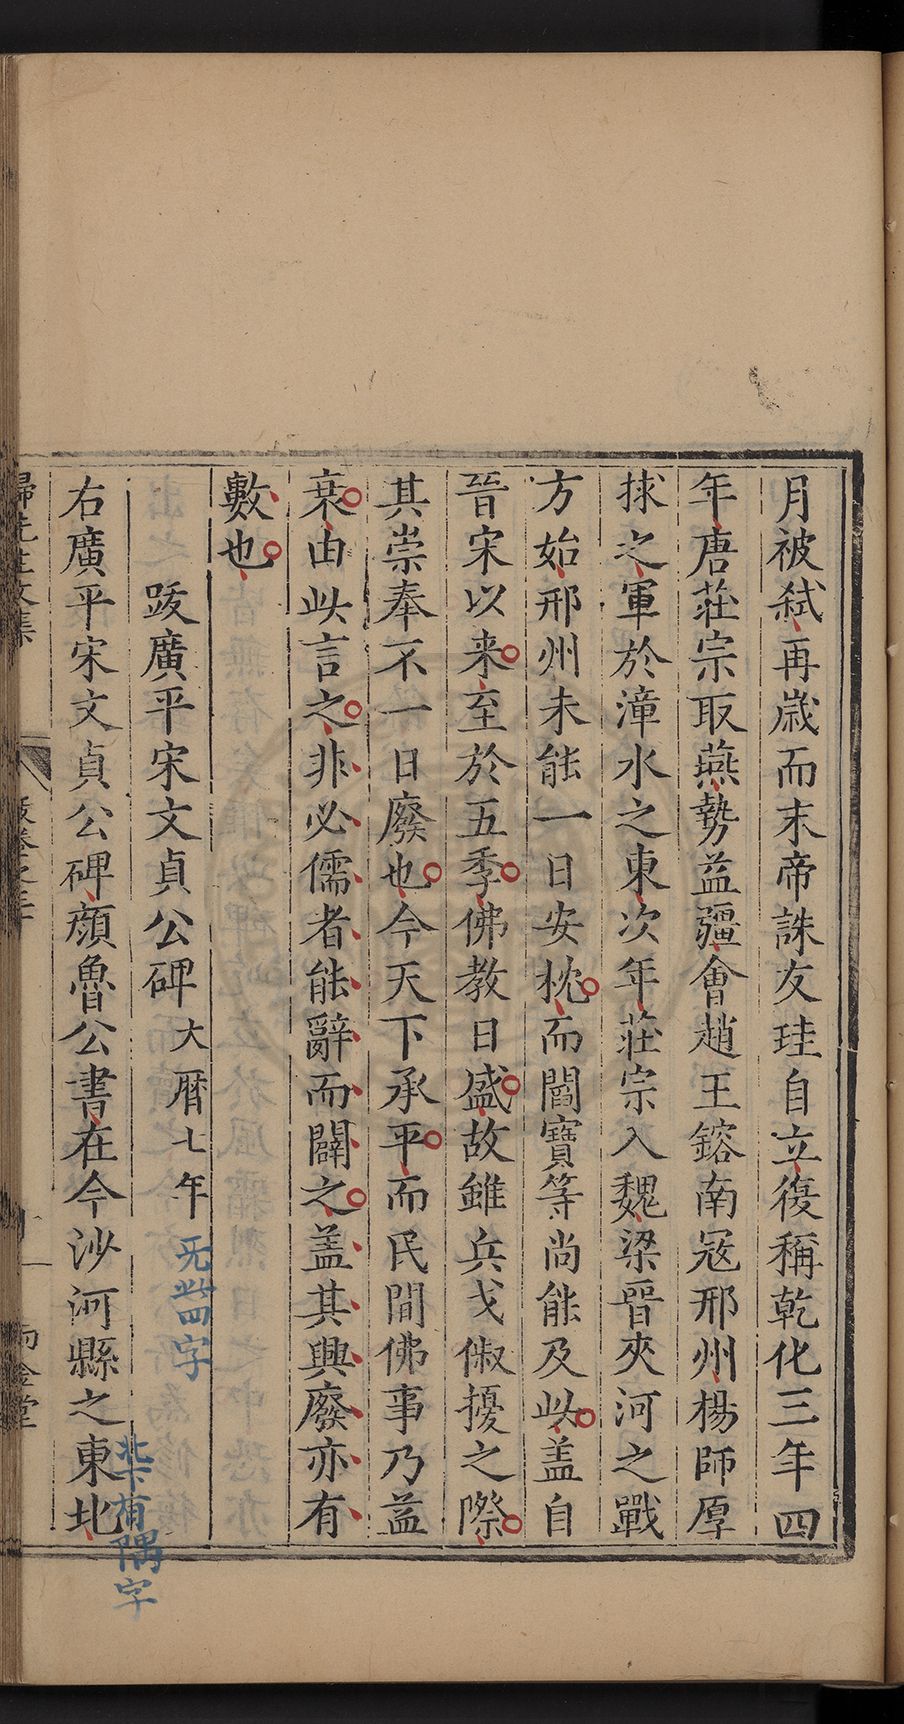 月被弑再歲而末帝誅友珪自立復稱乾化三年四
年唐莊宗取燕勢益疆會趙王鎔南冦邢州楊師厚
捄之軍於漳水之東次年莊宗入魏梁晉夾河之戰
方始邢州未能一日安枕而閻寶等尚能及此盖自
晉宋以来至於五季佛教日盛故雖兵戈俶擾之際
其崇奉不一日廢也今天下承平而民間佛事乃益
衰由此言之非必儒者能辭而闢之盖其興廢亦有
數也
跋廣平宋文貞公碑 大曆七年
无此四字
右廣平宋文貞公碑顔魯公書在今沙河縣之東北
北下有隅字